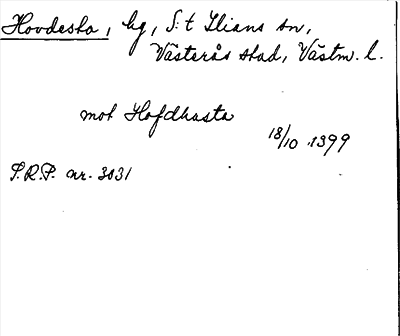 Hovdesta, hg, S:t Ilians sn,
Västerås stad, Västm. l.
mot Hofdhasta
18/10 1399
S.R.P. nr. 3031